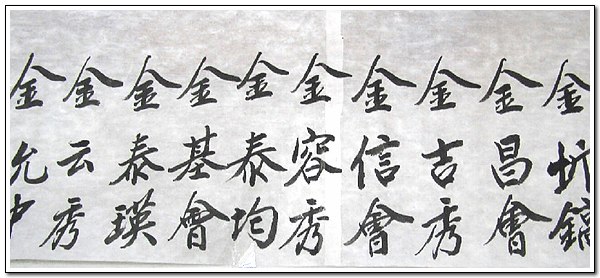 金圻
金昌會
金吉秀
金信會
金容秀
金泰均
金基會
金泰瑛
金云秀
金允